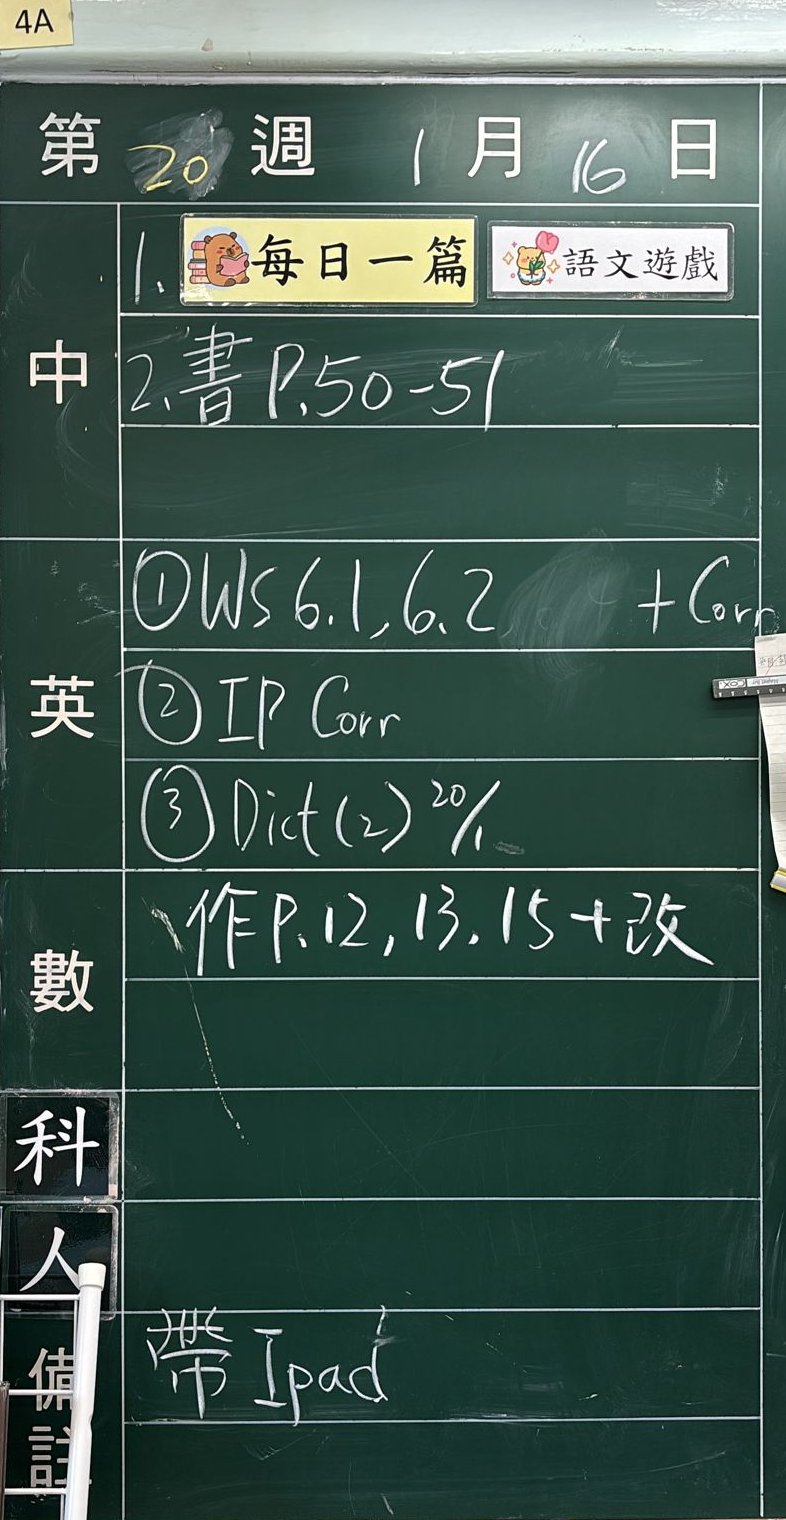 4A
第 20 週 1 月 16 日
中
1. 每日一篇 語文遊戲
2. 書 P.50-51
英
① WS 6.1, 6.2 + Corr
② IP Corr
③ Dict (2) 20/1
數
作 P.12, 13, 15 + 改
科
人
備註
帶 Ipad